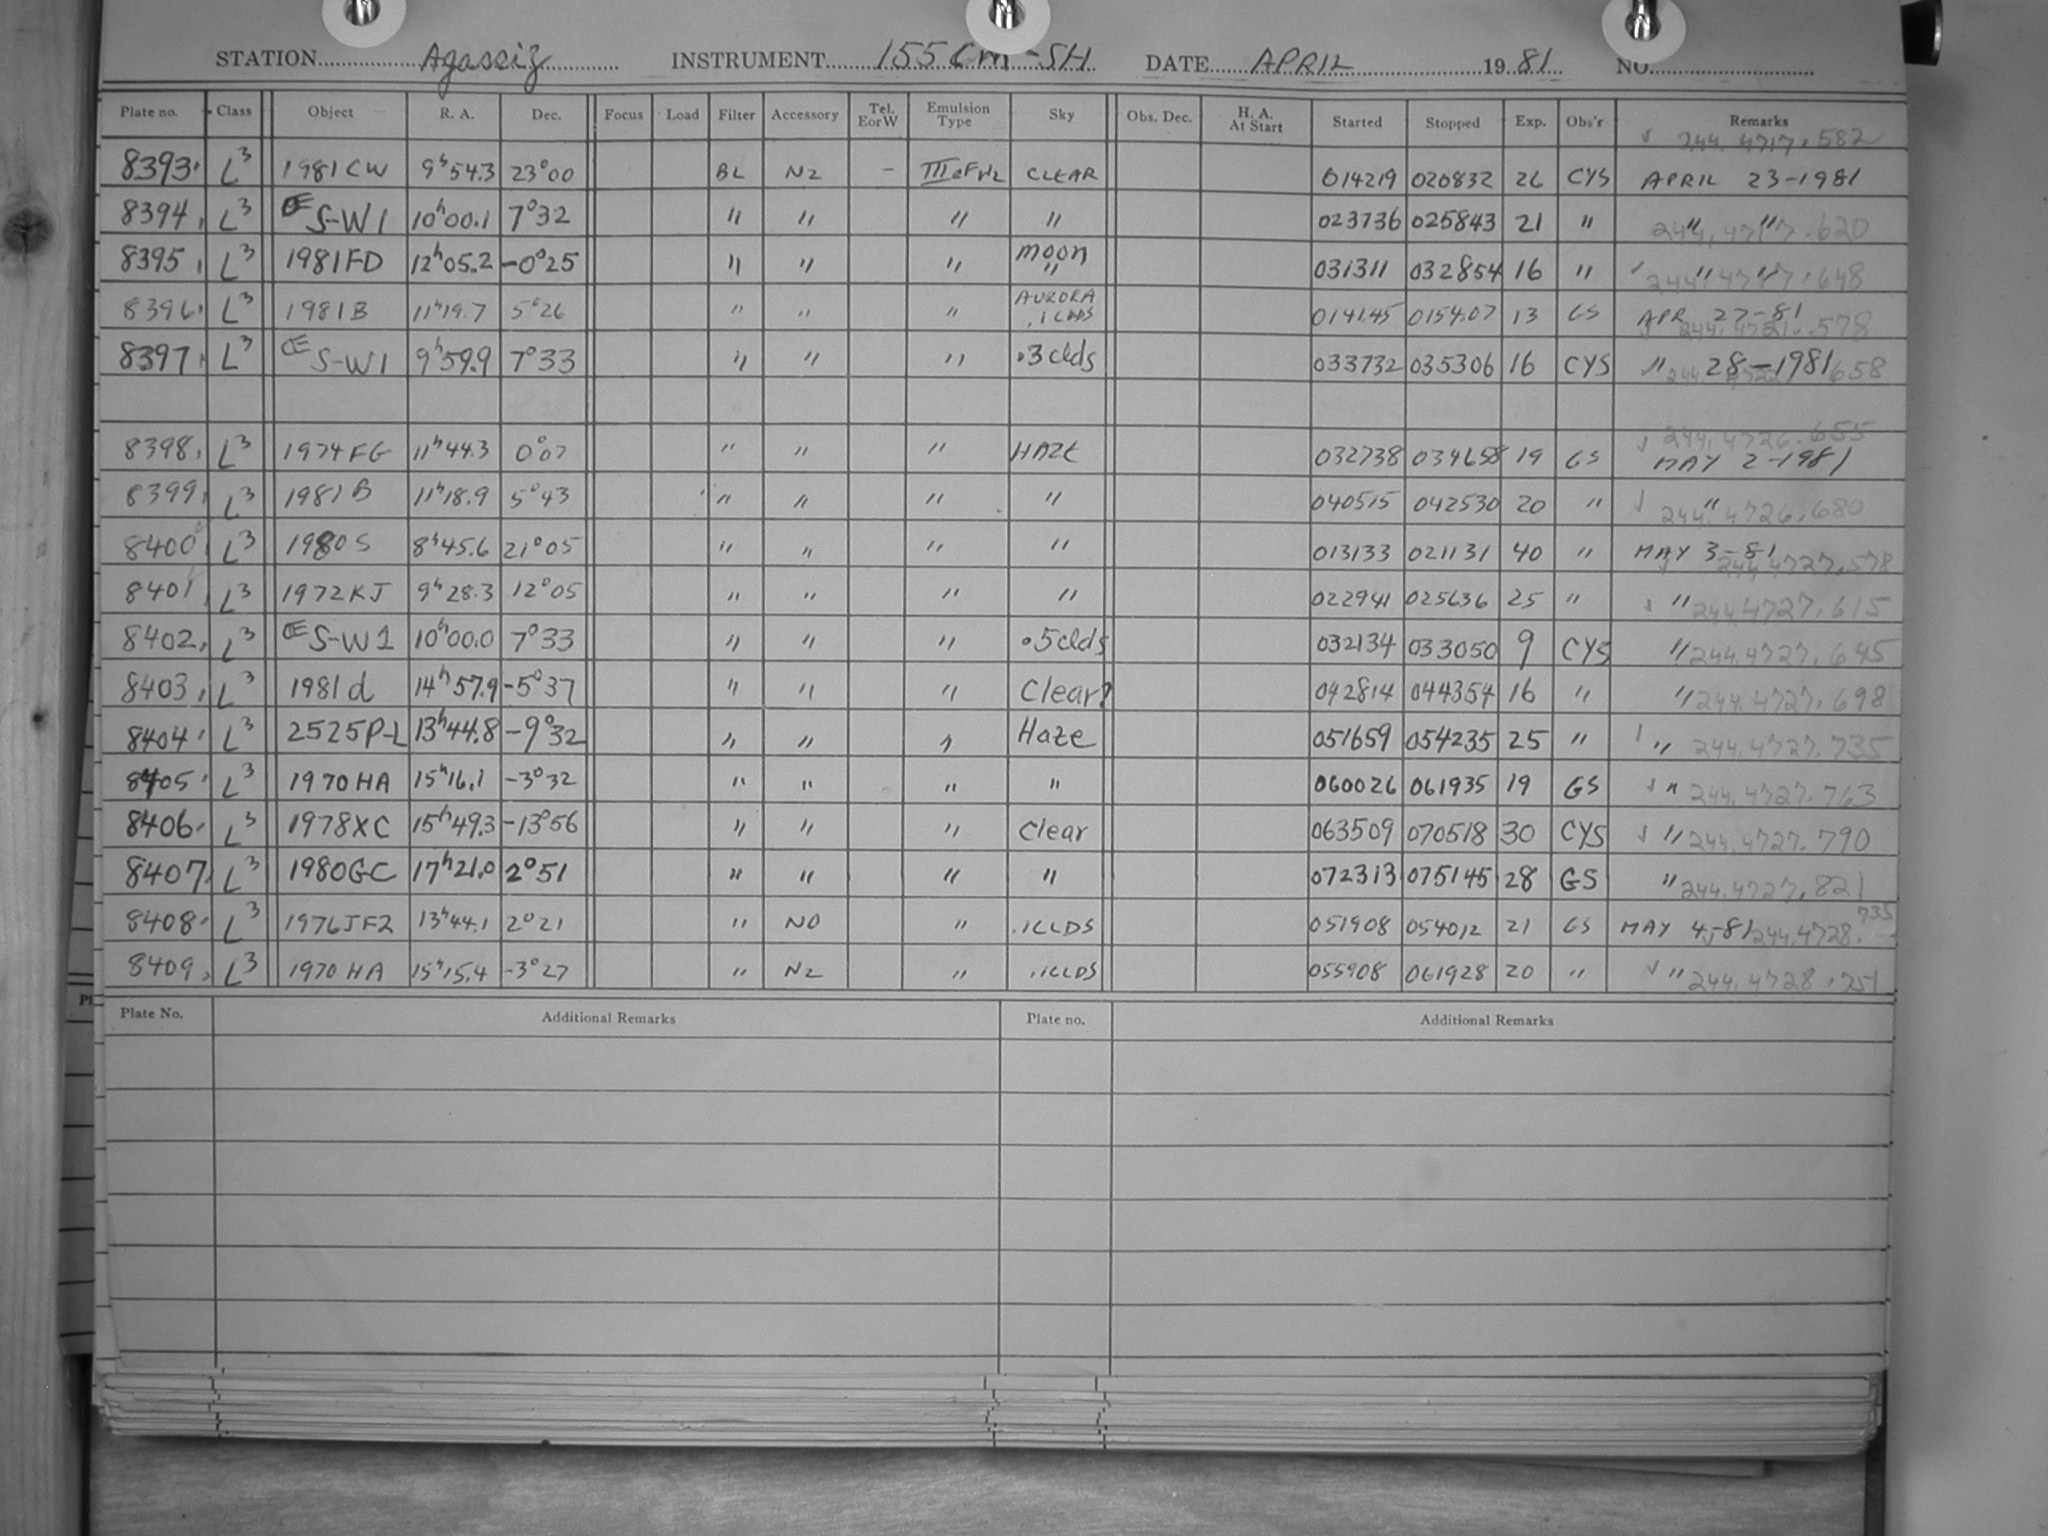 STATION Agassiz INSTRUMENT 155 cm-SH DATE APRIL 1981 NO.
Plate no. Class Object R. A. Dec. Focus Load Filter Accessory Tel. EorW Emulsion Type Sky Obs. Dec. H. A. At Start Started Stopped Exp. Obs'r Remarks
244.4717.582
8393 L3 1981CW 9h54.3 23°00 BL N2 - CLEAR 014219 020832 26 CYS APRIL 23-1981
8394 L3 S-W1 10h00.1 7°32 " " " " 023736 025843 21 " " " 244.4717.620
8395 L3 1981FD 12h05.2 -0°25 " " " moon " 031311 032854 16 " " " 244.4717.648
8396 L3 1981B 11h19.7 5°26 " " " AURORA .1CLDS 014145 015407 13 GS APR 27-81 244.4721.578
8397 L3 S-W1 9h59.9 7°33 " " " .3clds 033732 035306 16 CYS " 28-1981 658
8398 L3 1974FG 11h44.3 0°07 " " " HAZE 032738 034658 19 GS MAY 2-1981 244.4726.655
8399 L3 1981B 11h18.9 5°43 " " " " 040515 042530 20 " " 244.4726.680
8400 L3 1980S 8h45.6 21°05 " " " " 013133 021131 40 " MAY 3-81 244.4727.578
8401 L3 1972KJ 9h28.3 12°05 " " " " 022941 025636 25 " " 244.4727.615
8402 L3 S-W1 10h00.0 7°33 " " " .5clds 032134 033050 9 CYS " 244.4727.645
8403 L3 1981d 14h57.9 -5°37 " " " Clear? 042814 044354 16 " " 244.4727.698
8404 L3 2525P-L 13h44.8 -9°32 " " " Haze 051659 054235 25 " " 244.4727.735
8405 L3 1970HA 15h16.1 -3°32 " " " " 060026 061935 19 GS " 244.4727.763
8406 L3 1978XC 15h49.3 -13°56 " " " Clear 063509 070518 30 CYS " 244.4727.790
8407 L3 1980GC 17h21.0 2°51 " " " " 072313 075145 28 GS " 244.4727.821
8408 L3 1976JF2 13h44.1 2°21 " NO " .1CLDS 051908 054012 21 GS MAY 4-81 244.4728.735
8409 L3 1970HA 15h15.4 -3°27 " N2 " .1CLDS 055908 061928 20 " " 244.4728.751
Plate No. Additional Remarks Plate no. Additional Remarks